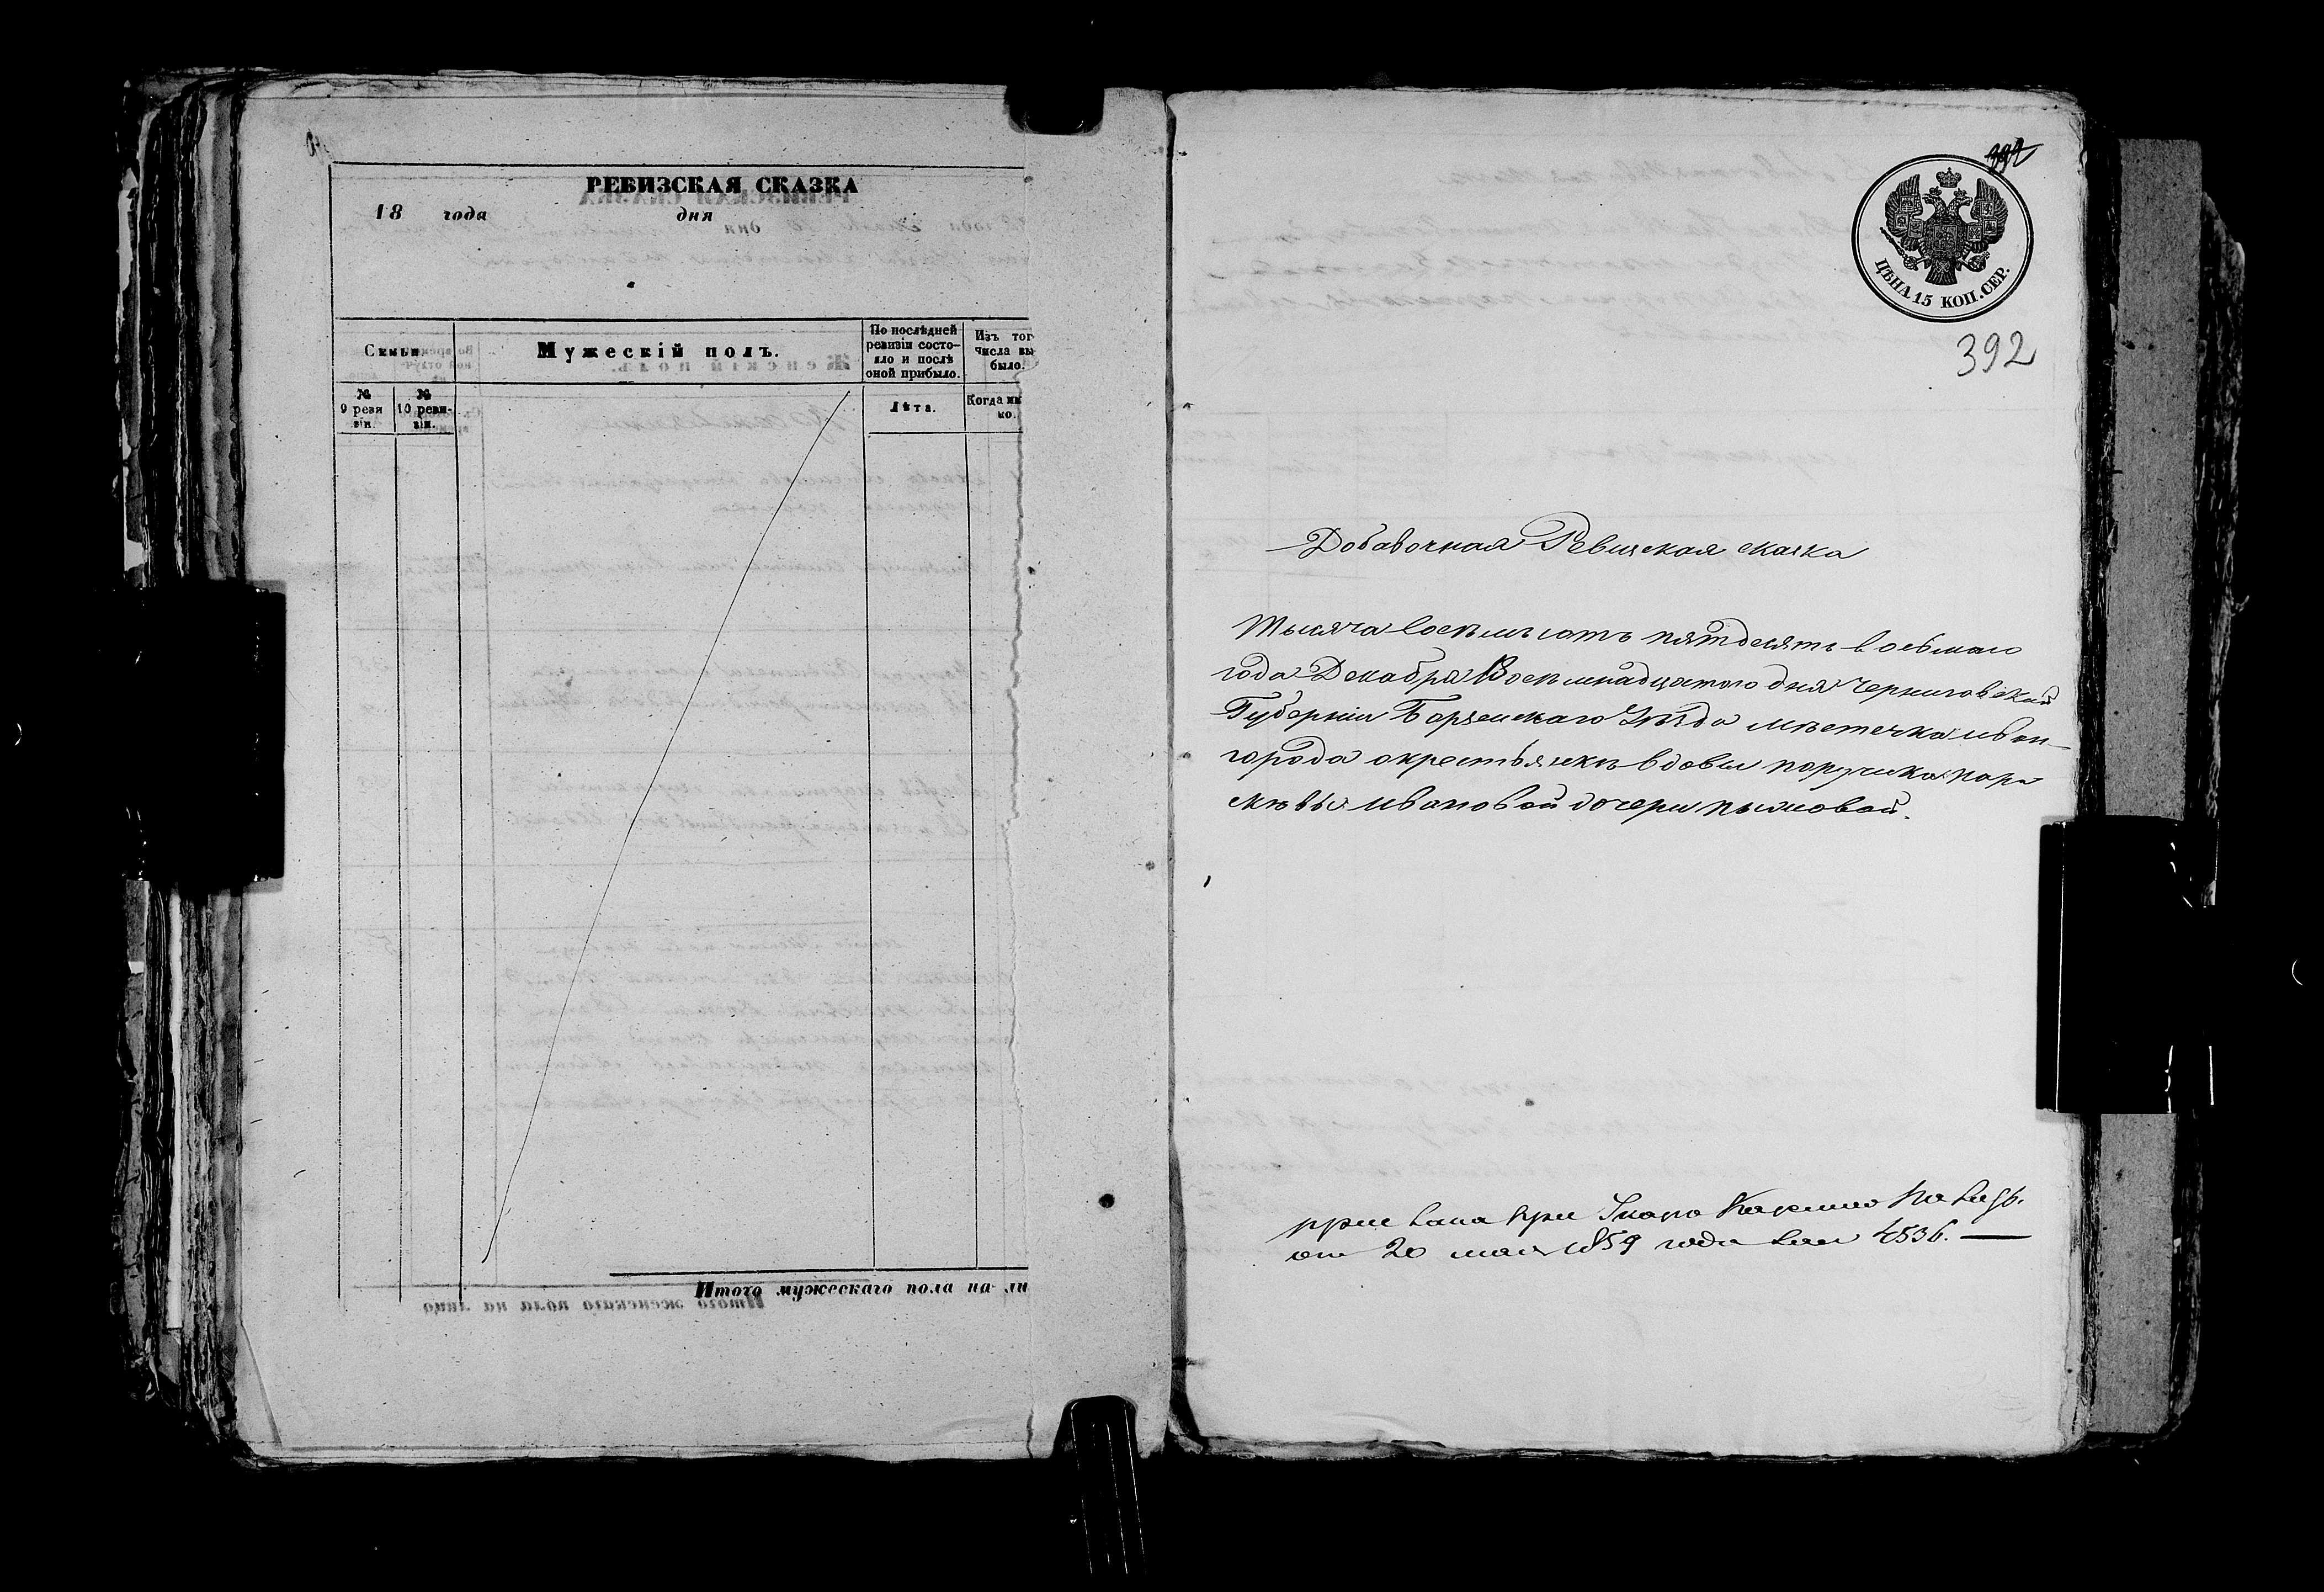 РЕВИЗСКАЯ СКАЗКА
18 года дня
Семьи
Мужескій полъ.
По послѣдней ревизіи состо-
яло и послѣ оной прибыло.
Изъ тог
числа вы-
было.
№ 9 реви зіи.
№ 10 реви-
зіи.
Лѣта.
Когда им
но.
Итого мужескаго пола на ли
392
ЦѢНА 15 КОП. СЕР.
392
Добавочная Ревизская сказка
Тысяча восемьсотъ пятдесятъ восьмаго
года Декабря Восемнадцатого дня Черниговской
Губерніи Борзенскаго Уѣзда мѣстечка иван-
города окрестьянехъ вдовы поручика пара
скевіи ивановой дочери
от 20 мая 1859 года 4536.